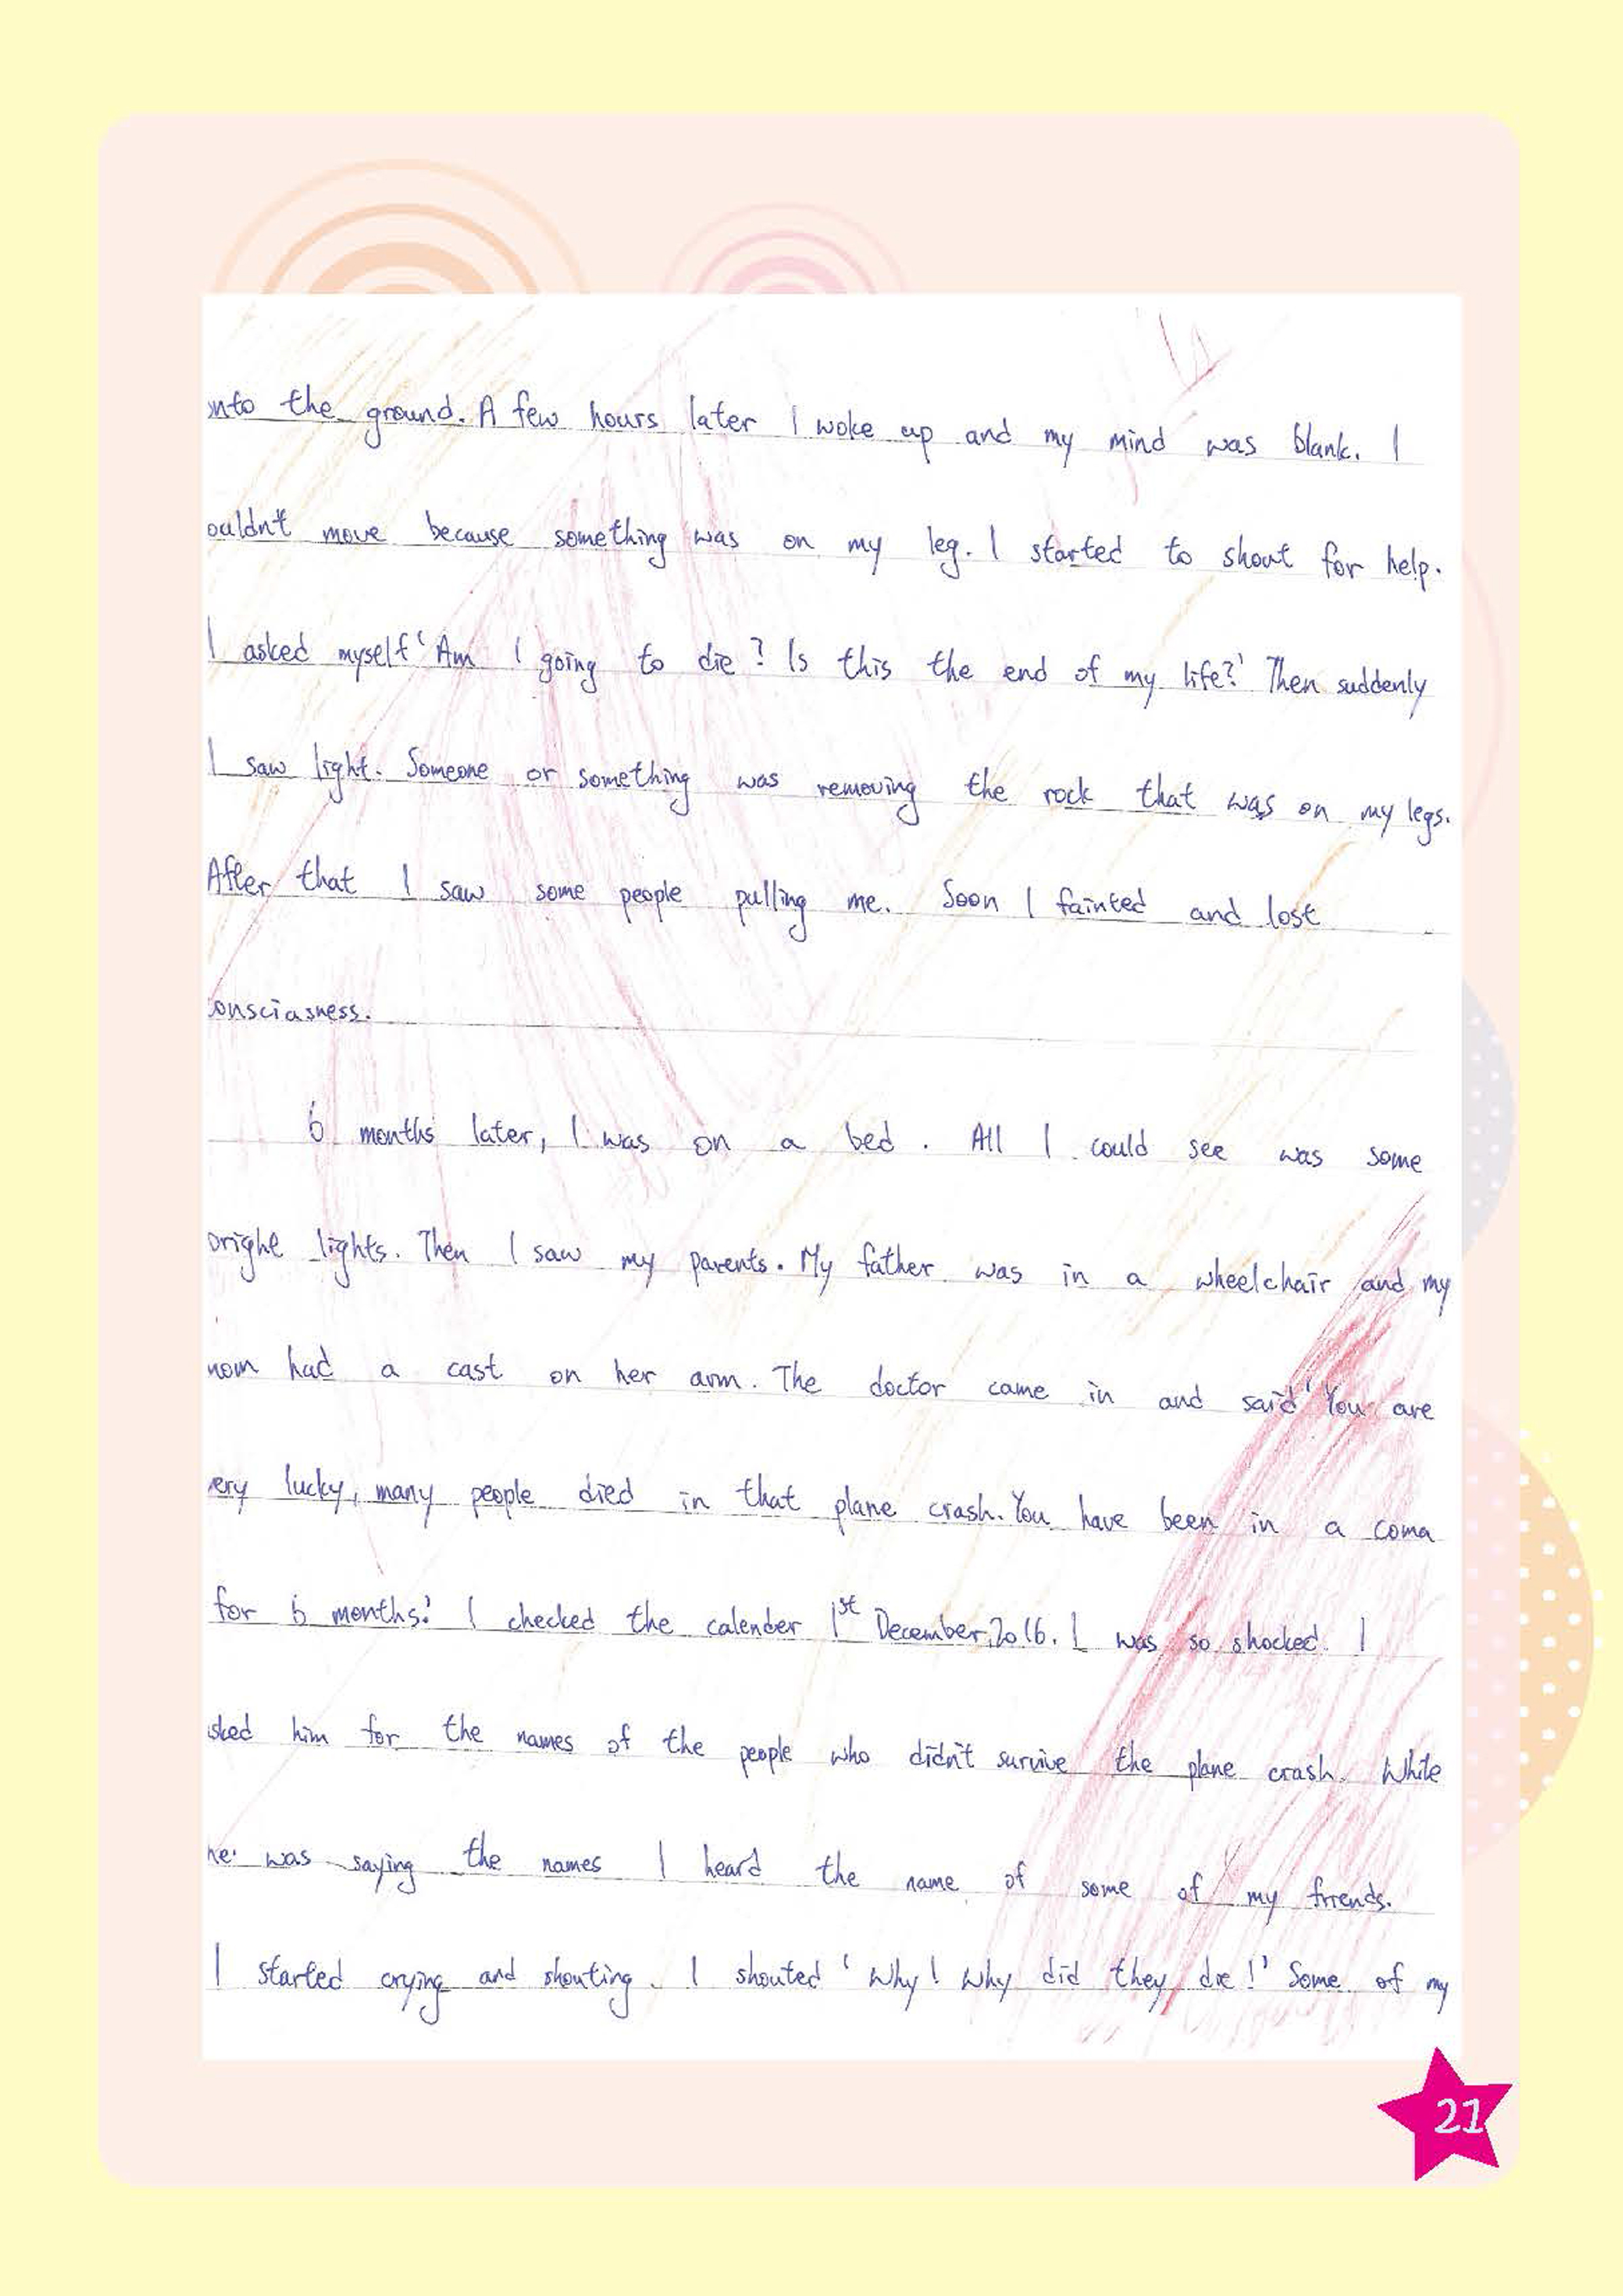 onto the ground. A few hours later I woke up and my mind was blank. I
ouldn't move because something was on my leg. I started to shout for help.
I asked myself 'Am I going to die? Is this the end of my life?' Then suddenly
I saw light. Someone or something was removing the rock that was on my legs.
After that I saw some people pulling me. Soon I fainted and lost
consciasness.
6 months later, I was on a bed. All I could see was some
bright lights. Then I saw my parents. My father was in a wheelchair and my
mom had a cast on her arm. The doctor came in and said 'You are
ery lucky, many people died in that plane crash. You have been in a coma
for 6 months.' I checked the calender 1st December, 2016. I was so shocked. I
sked him for the names of the people who didn't survive the plane crash. While
he was saying the names I heard the name of some of my friends.
I started crying and shouting. I shouted 'Why! Why did they die!' Some of my
21